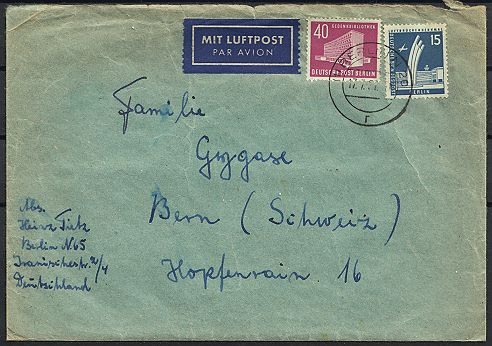 MIT LUFTPOST
PAR AVION
40
GEDENKBIBLIOTHEK
DEUTSCHE POST BERLIN
15
BERLIN
Familie
Gygase
Bern (Schweiz)
Hopfenrain 16
Abs.
Heinz Tietz
Berlin N65
Iranischestr. 2/4
Deutschland